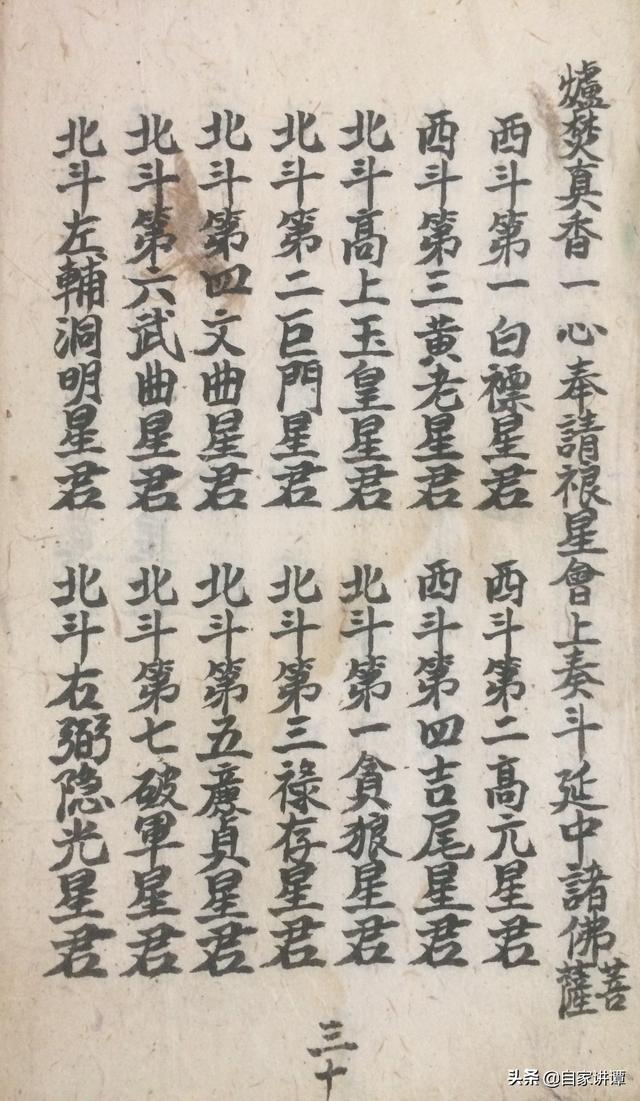 爐焚真香一心奉請禳星會上奏斗延中諸佛菩薩
西斗第一白標星君 西斗第二高亢星君
西斗第三黃老星君 西斗第四吉尾星君
北斗高上玉皇星君 北斗第一貪狼星君
北斗第二巨門星君 北斗第三祿存星君
北斗第四文曲星君 北斗第五廉貞星君
北斗第六武曲星君 北斗第七破軍星君
北斗左輔洞明星君 北斗右弼隐光星君
三十
头条 @自家讲谭